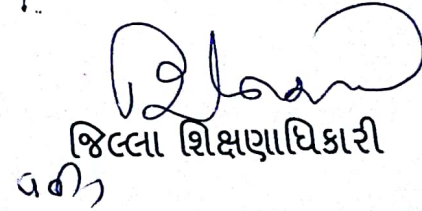 જિલ્લા શિક્ષણાધિકારી
વતી